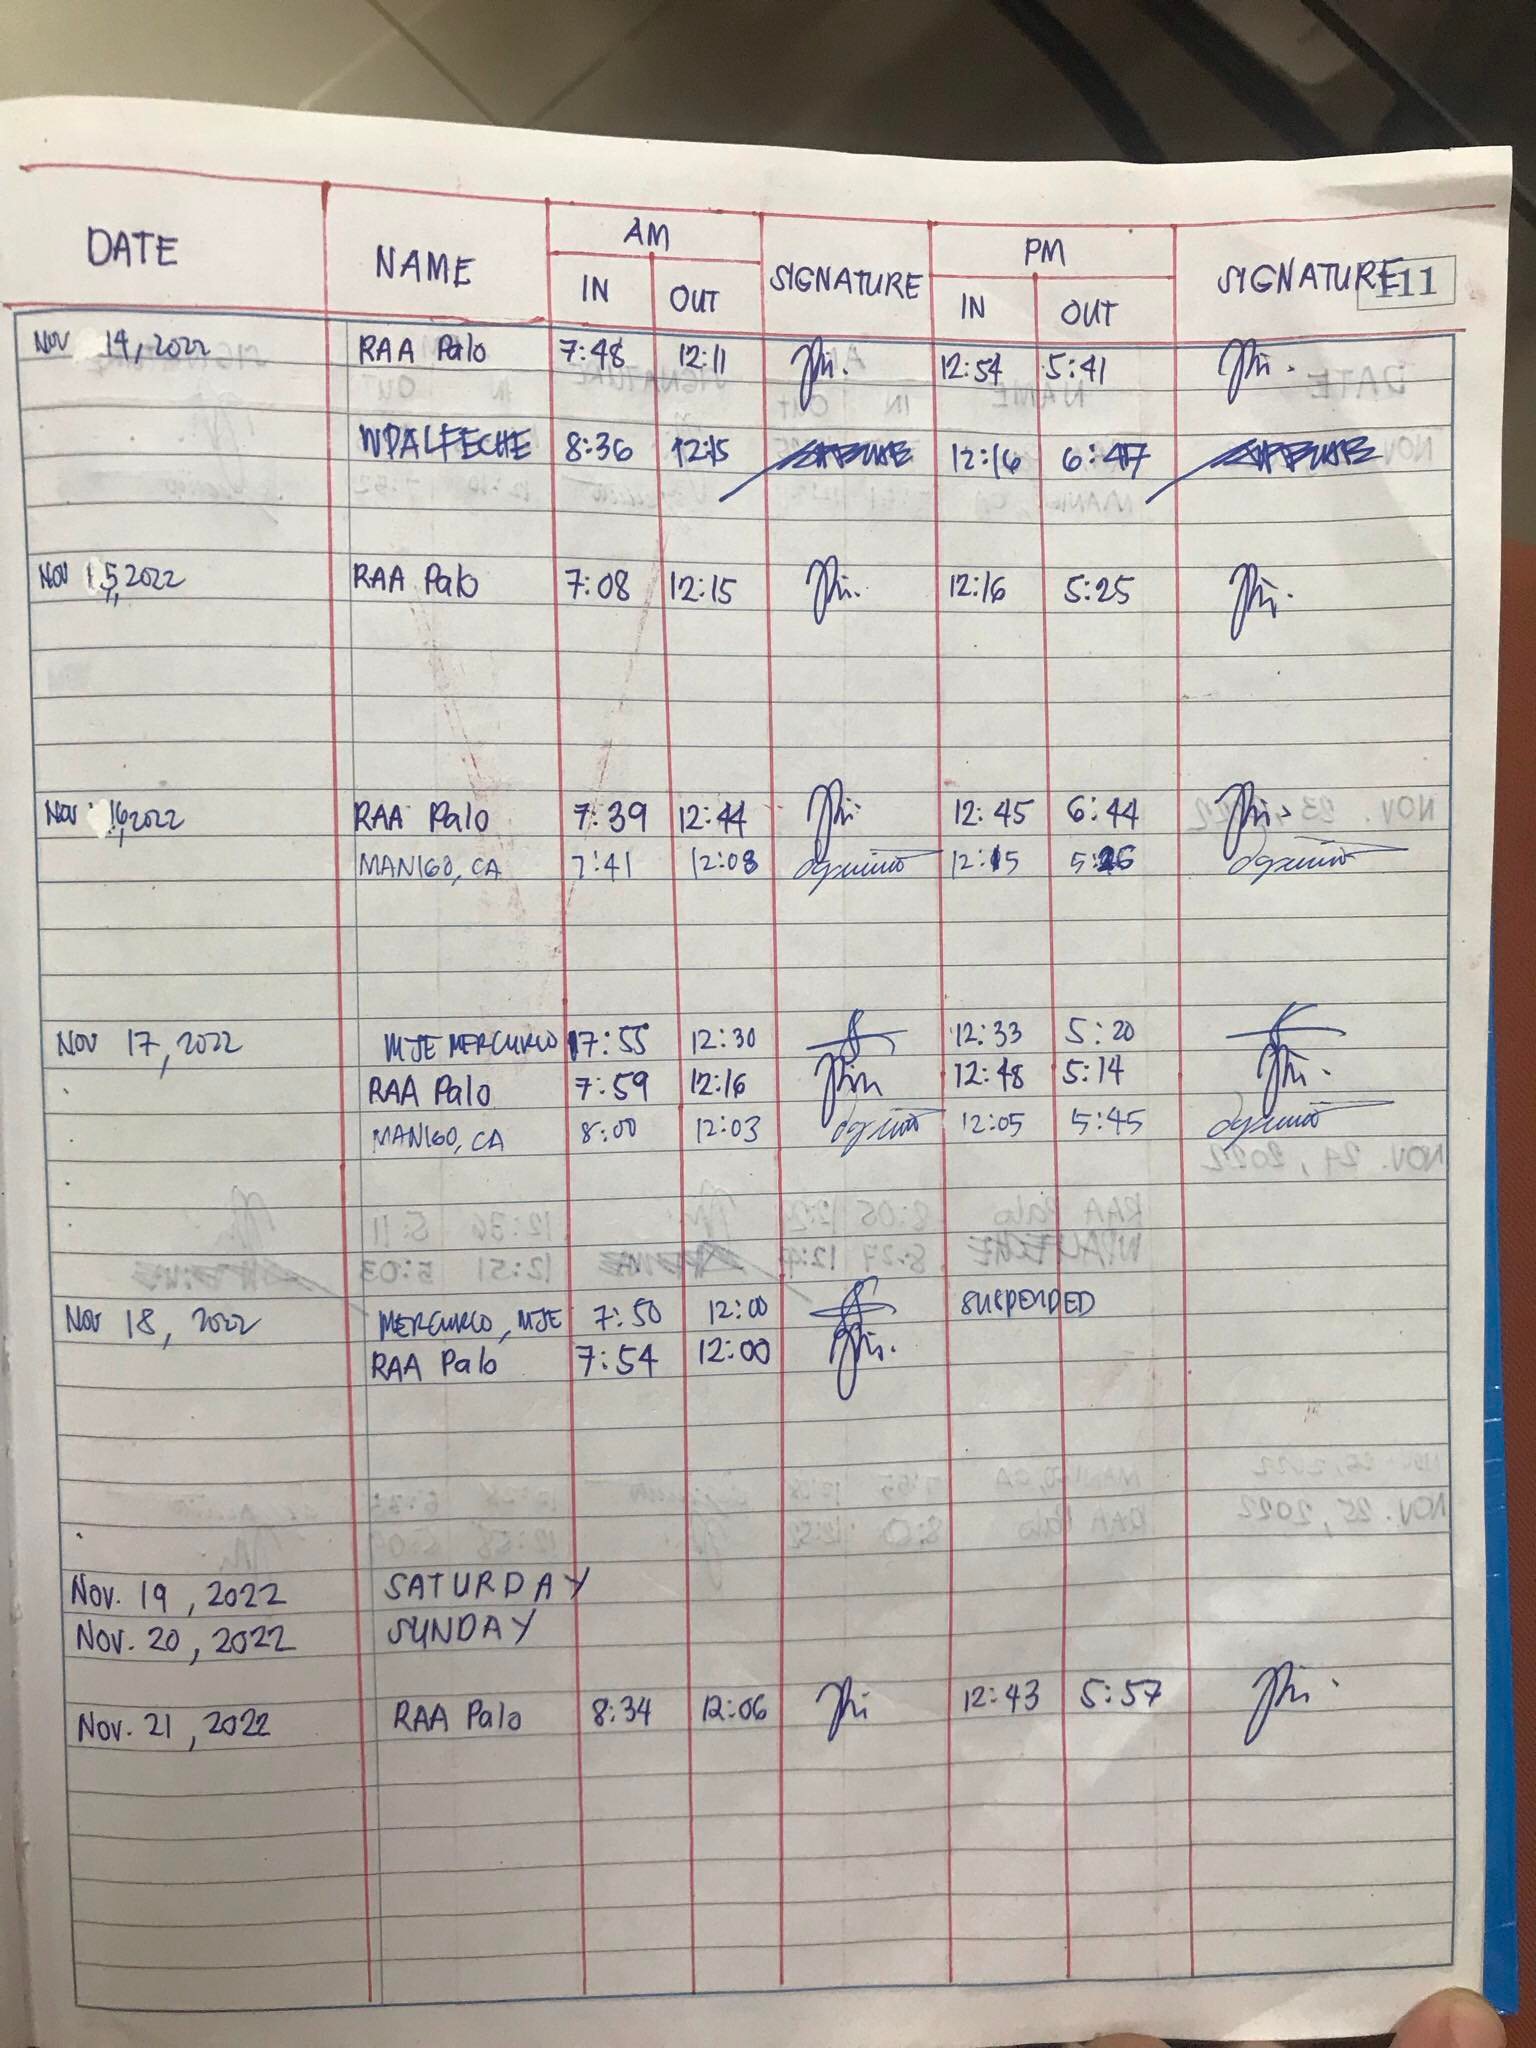 DATE NAME AM SIGNATURE PM SIGNATURE 111
IN OUT IN OUT
Nov 14, 2022 RAA Palo 7:48 12:11 12:54 5:41
WDALFECHE 8:36 12:15 12:16 6:47
Nov 15, 2022 RAA Palo 7:08 12:15 12:16 5:25
Nov 16, 2022 RAA Palo 7:39 12:44 12:45 6:44
MANIGO, CA 7:41 12:08 12:15 5:26
Nov 17, 2022 MJE MERCURIO 7:55 12:30 12:33 5:20
RAA Palo 7:59 12:16 12:48 5:14
MANIGO, CA 8:00 12:03 12:05 5:45
Nov 18, 2022 MERCURIO, MJE 7:50 12:00 SUSPENDED
RAA Palo 7:54 12:00
Nov. 19, 2022 SATURDAY
Nov. 20, 2022 SUNDAY
Nov. 21, 2022 RAA Palo 8:34 12:06 12:43 5:57